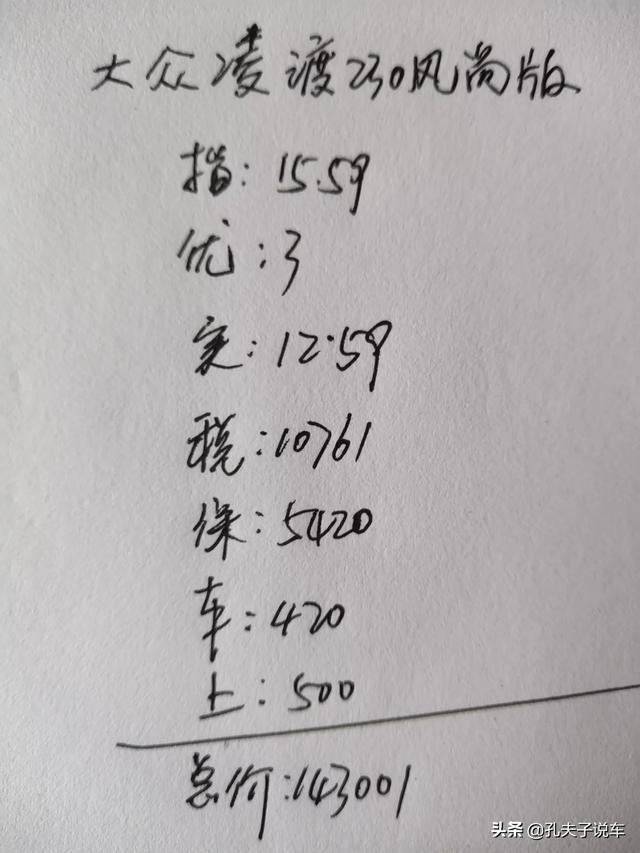 大众凌渡230风尚版
指:15.59
优:3
实:12.59
税:10761
保:5420
车:420
上:500
总价:143001
头条 @孔夫子说车